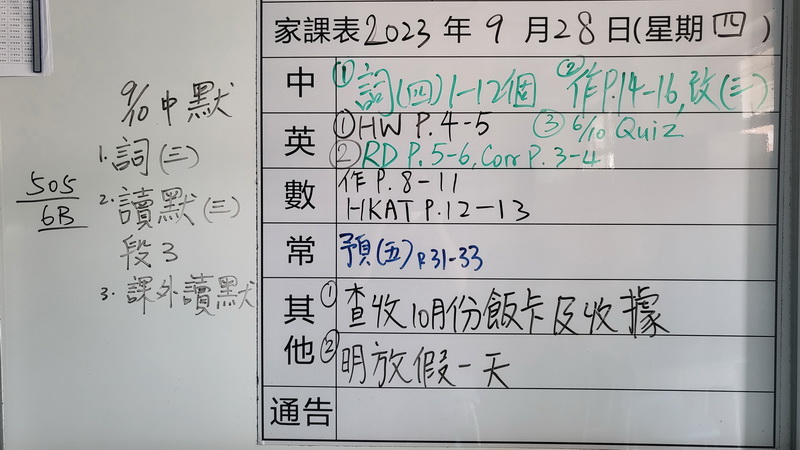 家課表2023年9月28日(星期四)
中 ①詞(四)1-12個 ②作P.14-16,改(三)
英 ①HW P.4-5 ③6/10 Quiz
②RD P.5-6, Corr P.3-4
數 作P.8-11
HKAT P.12-13
常 預(五)P.31-33
其他 ①查收10月份飯卡及收據
②明放假一天
通告
9/10中默
1.詞(三)
2.讀默(三)
段3
3.課外讀默
505
6B